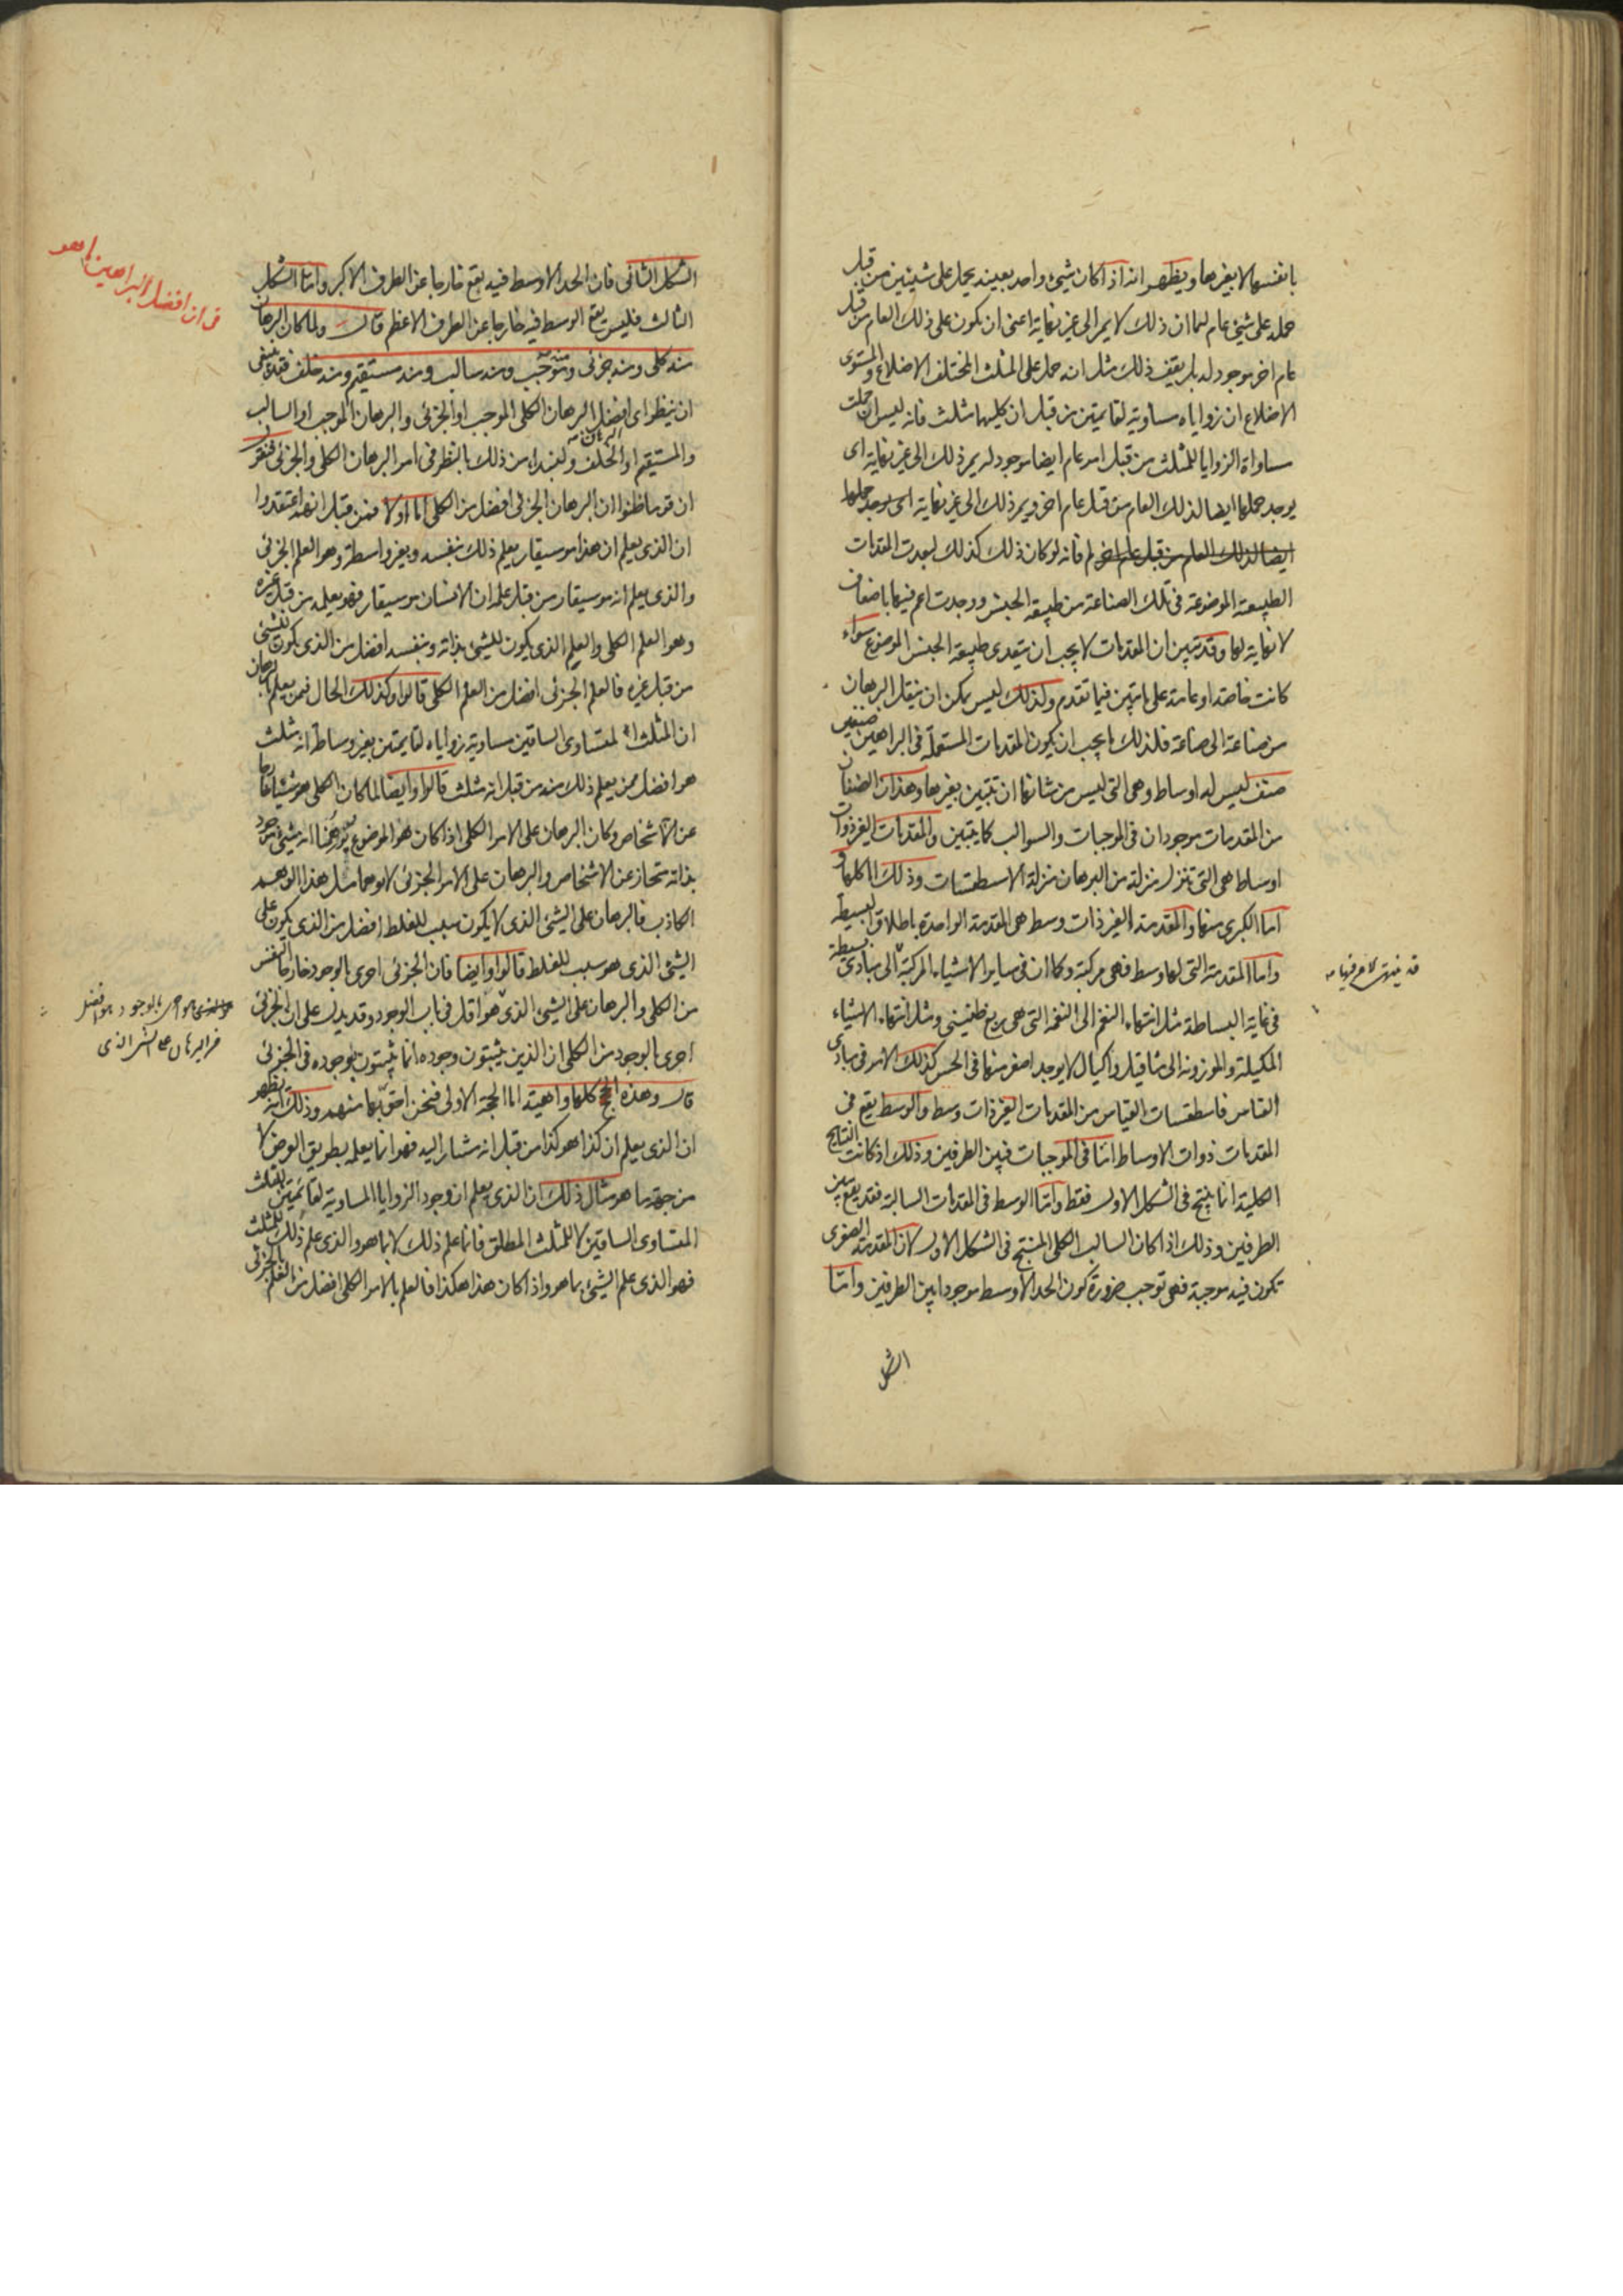 بانفسها لا بغيرها ويظهر انه اذا كان شيء واحد بعينه يحمل على شيئين من قبل
حمله على شيء عام لهما ان ذلك لا يمر الى غير نهاية اعنى ان يكون على ذلك العام من قبل
عام اخر موجود له بل يقف ذلك مثل انه حمل على المثلث المختلف الاضلاع والمستوى
الاضلاع ان زواياه مساوية لقائمتين من قبل ان كليهما مثلث فانه ليس ان حملت
مساواة الزوايا للمثلث من قبل امر عام ايضا موجود له يمر ذلك الى غير نهاية اى
يوجد حملها ايضا لذلك العام من قبل عام اخر ويمر ذلك الى غير نهاية اى يوجد حملها
ايضا لذلك العام من قبل عام اخر فانه لو كان ذلك كذلك لبعدت المقدمات
الطبيعة الموضوعة فى تلك الصناعة من طبيعة الجنس ووجدت اعم فيها باضعاف
لا نهاية لها وقد تبين ان المقدمات لا يجب ان يتعدى طبيعة الجنس الموضوع سواء
كانت خاصة او عامة على ما تبين فيما تقدم ولذلك ليس يمكن ان ينقل البرهان
من صناعة الى صناعة فلذلك ما يجب ان يكون المقدمات المستعملة فى البراهين صنفين
صنف ليس له اوساط وهى التى ليس من شانها ان تتبين بغيرها وهذان الصنفان
من المقدمات موجودان فى الموجبات والسوالب كما يتبين والمقدمات الغير ذوات
اوساط هى التى تتنزل منزلة من البرهان منزلة الاسطقسات وذلك اما كلها و
اما الكبرى منها والمقدمة الغير ذات وسط هى المقدمة الواحدة باطلاق البسيطة
واما المقدمة التى لها وسط فهى مركبة وكما ان فى ساير الاشياء المركبة الى مبادى بسيطة
فى غاية البساطة مثل انتهاء النغم الى النغمة التى هى ربع طنينى ومثل انتهاء الاشياء
المكيلة والموزونة الى مثاقيل واكيال لا يوجد اصغر منها فى الحس كذلك الامر فى مبادى
القياس فاسطقسات القياس من المقدمات الغير ذات وسط والوسط يقع فى
المقدمات ذوات الاوساط اما فى الموجبات فبين الطرفين وذلك اذ كانت النتايج
الكلية انما ينتج فى الشكل الاول فقط واما الوسط فى المقدمات السالبة فقد يقع بين
الطرفين وذلك اذا كان السالب الكلى المنتج فى الشكل الاول لان المقدمة الصغرى
تكون فيه موجبة فهى توجب ضرورة كون الحد الاوسط موجودا بين الطرفين واما
الشكل
الشكل الثانى فان الحد الاوسط فيه يقع خارجا عن الطرف الاكبر واما الشكل
الثالث فليس يقع الوسط فيه خارجا عن الطرف الاعظم قال ولما كان البرهان
منه كلى ومنه جزئى ومنه موجب ومنه سالب ومنه مستقيم ومنه خلف فقد ينبغى
ان ينظر اى افضل البرهان الكلى الموجب او الجزئى والبرهان الموجب او السالب
والمستقيم او الخلف ولنبدا من ذلك بالنظر فى امر البرهان الكلى والجزئى فنقول
ان قوما ظنوا ان البرهان الجزئى افضل من الكلى اما اولا فمن قبل انهم اعتقدوا
ان الذى يعلم ان هذا موسيقار يعلم ذلك بنفسه وبغير واسطة وهو العلم الجزئى
والذى يعلم انه موسيقار من قبل علمه ان الانسان موسيقار فهو يعلمه من قبل غيره
وهو العلم الكلى والعلم الذى يكون للشيء بذاته وبنفسه افضل من الذى يكون للشيء
من قبل غيره فالعلم الجزئى افضل من العلم الكلى قالوا وكذلك الحال فيمن يعلم بالبرهان
ان المثلث المتساوى الساقين مساوية زواياه لقايمتين بغير وساطة انه مثلث
هو افضل ممن يعلم ذلك منه من قبل انه مثلث قالوا وايضا لما كان الكلى هو شيئا خارجا
عن الاشخاص وكان البرهان على الامر الكلى اذا كان هو الموضوع يوهمنا انه شيء موجود
بذاته منحاز عن الاشخاص والبرهان على الامر الجزئى لا يوهمنا مثل هذا الوهم
الكاذب فالبرهان على الشيء الذى لا يكون سبب للغلط افضل من الذى يكون على
الشيء الذى هو سبب للغلط قالوا وايضا فان الجزئى احرى بالوجود خارج النفس
من الكلى والبرهان على الشيء الذى هو اقل فى باب الوجود وقد يدل على ان الجزئى
احرى بالوجود من الكلى ان الذين يثبتون وجوده انما يثبتون بوجوده فى الجزئى
قال وهذه الحجج كلها واهية اما الحجة الاولى فنحن احق بها منهم وذلك انه يظهر
ان الذى يعلم ان كذا هو كذا من قبل انه مشار اليه فهو انما يعلمه بطريق العرض لا
من جهة ما هو مثال ذلك ان الذى يعلم ان وجود الزوايا المساوية لقائمتين للمثلث
المتساوى الساقين لا للمثلث المطلق فانما علم ذلك لا بما هو والذى علم ذلك للمثلث
فهو الذى علم الشيء بما هو واذا كان هذا هكذا فالعلم بالامر الكلى افضل من العلم بالجزئى
فى ان افضل البراهين ما هو